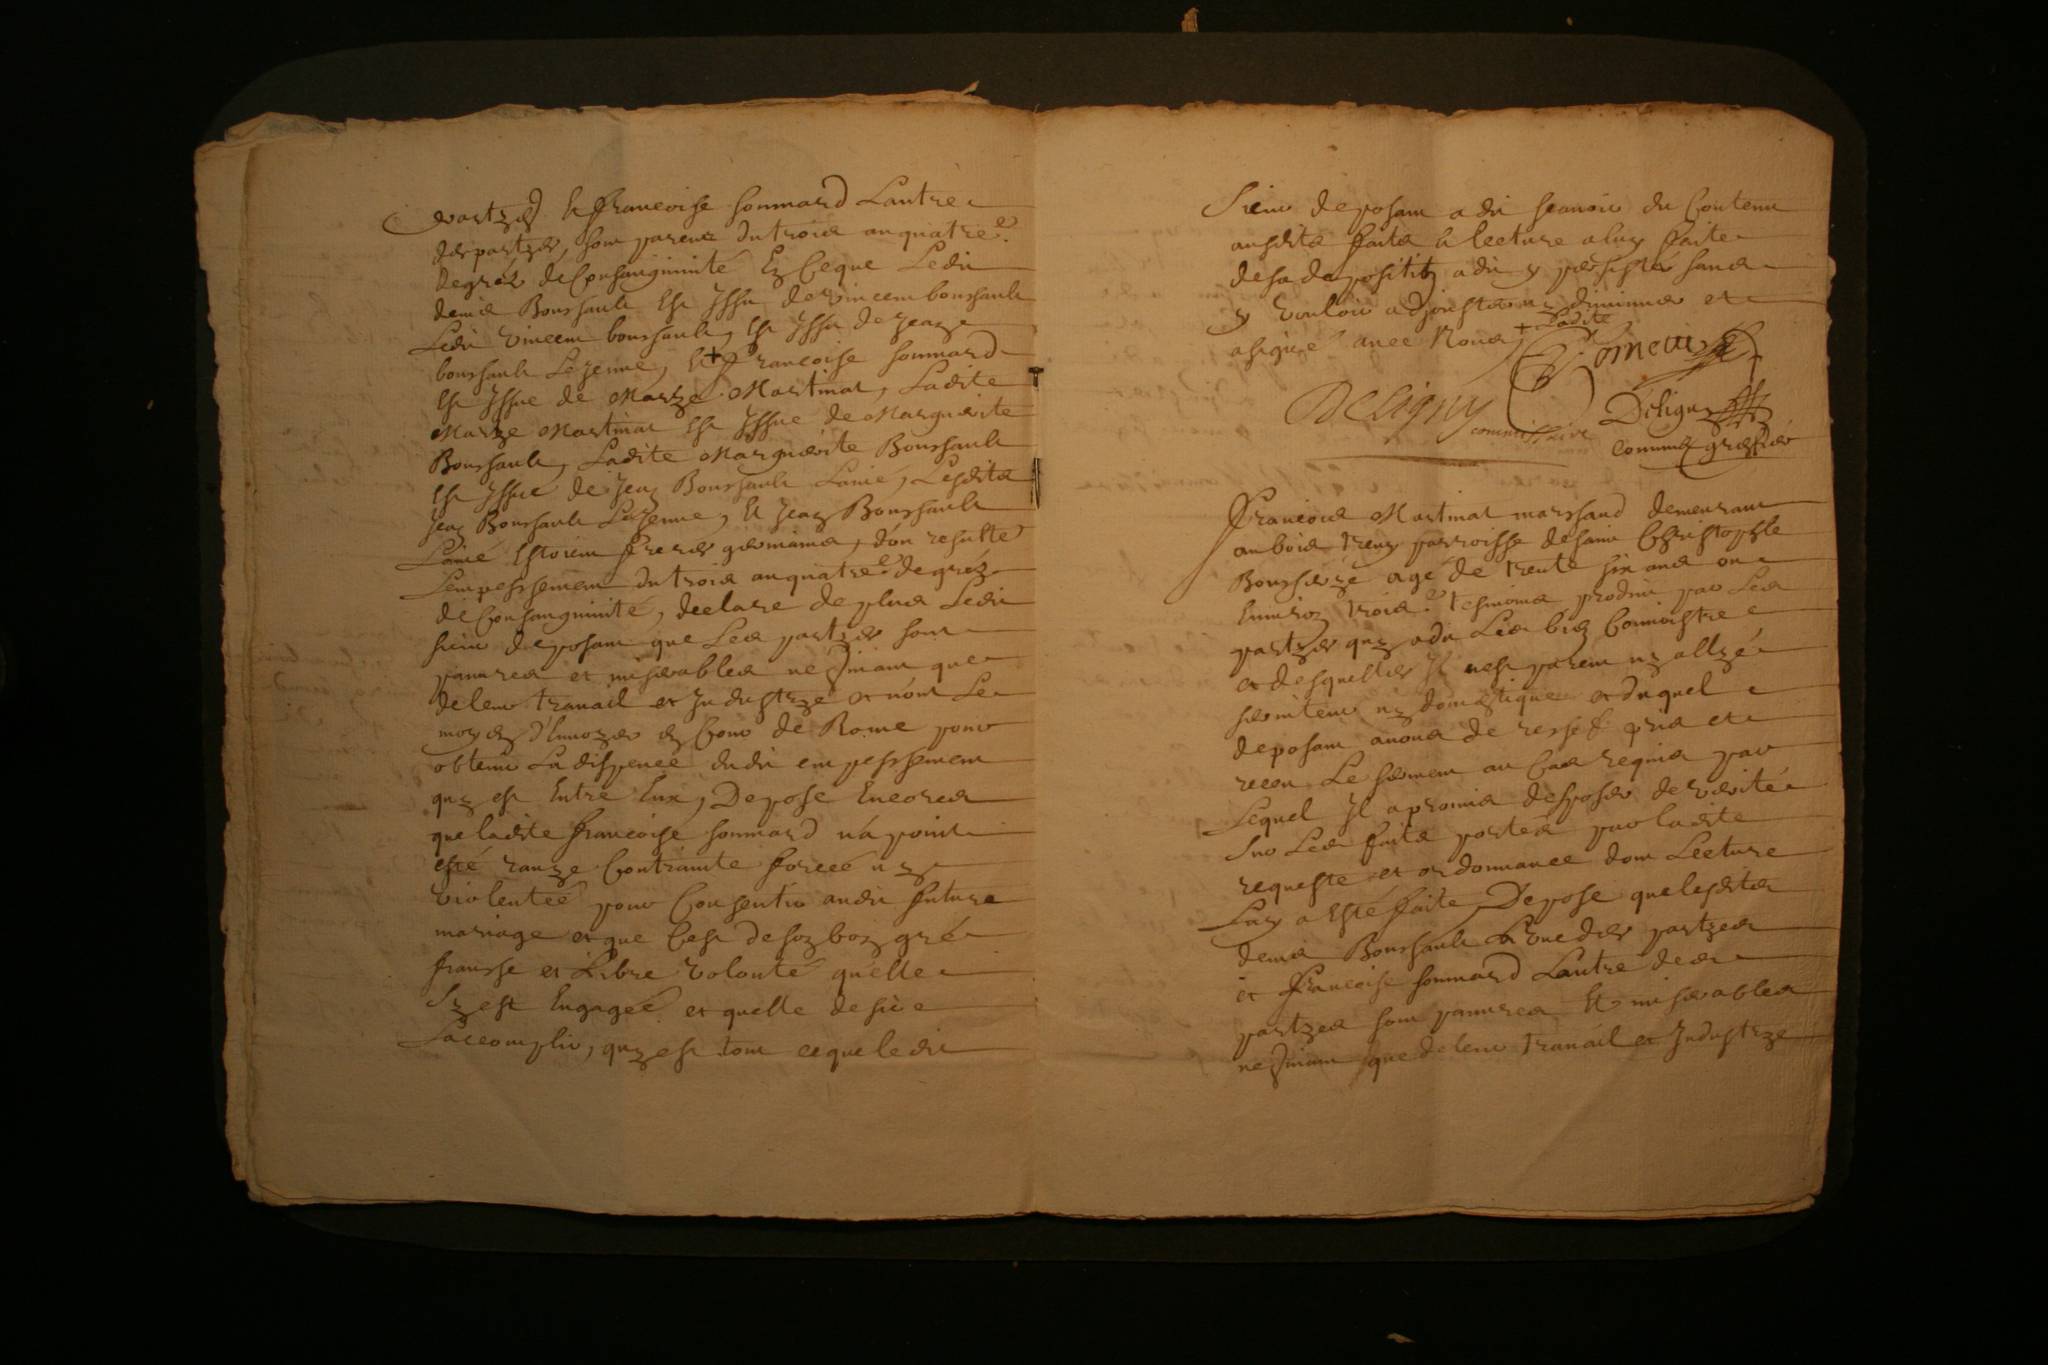 partyes et francoise sommard Lautre
des partyes, sont parent du trois au quatre.e
degréz de Consanguinité En Ceque Ledit
denis Boussault Est Issu de vincent boussault
Ledit vincent boussault, Est Issu de Jean
boussault Le Jeune, Et + francoise sommard
Est Issue de Marye Martinat, Ladite
Marye Martinat Est Issue de Marguerite
Boussault, Ladite Marguerite Boussault
Est Issue de Jean Boussault Lainé, Lesdits
Jean Boussault Le Jeune, Et Jean Boussault
Lainé Estoient freres germains, dou resulte
Lempeschement du trois au quatre.e degréz
de Consanguinité, declare de plus Ledit
sieur deposant que Les partyes sont
pauvres et miserables ne vivant que
de leur travail et Industrye et nont Le
moyen d'Envoyer en Cour de Rome pour
obtenir La dispence dudit empeschement
quy est Entre Eux, Depose Encores
que ladite francoise sommard n'a point
esté ravye Contrainte forcée ny
violentée pour Consentir audit future
mariage et que Cest de son bon gré
franche et Libre volonté quelle
Sy est Engagée et quelle desire
Laccomplir, quy est tout ce que ledit
Sieur deposant a dit scavoir du Contenu
ausdits faits et lecture a luy faite
de sa deposition a dit y persister sans
y vouloir adjouster ny diminuer et
a signé avec Nous, + Ladite
Deligny
commissaire
Deligny
comme greffier
francois Martinat marchand demeurant
au bois treux parroisse de saint Christophle
Boucherye agé de trente six ans ou
Environ, trois.e tesmoins produit par Les
partyes quy a dit Les bien Connoistre
et desquelles Il nest parent ny allyé
serviteur ny domestique et duquel
deposant avons de reschef pris et
receu Le serment au Cas requis par
Lequel Il a promis desposer de verité
sur Les faits portés par ladite
requeste et ordonnance dont Lecture
Luy a Esté faite, Depose que lesdits
denis Boussault Lune des partyes
et francoise sommard Lautre des
partyes sont pauvres Et miserables
ne vivant que de leur travail et Industrye